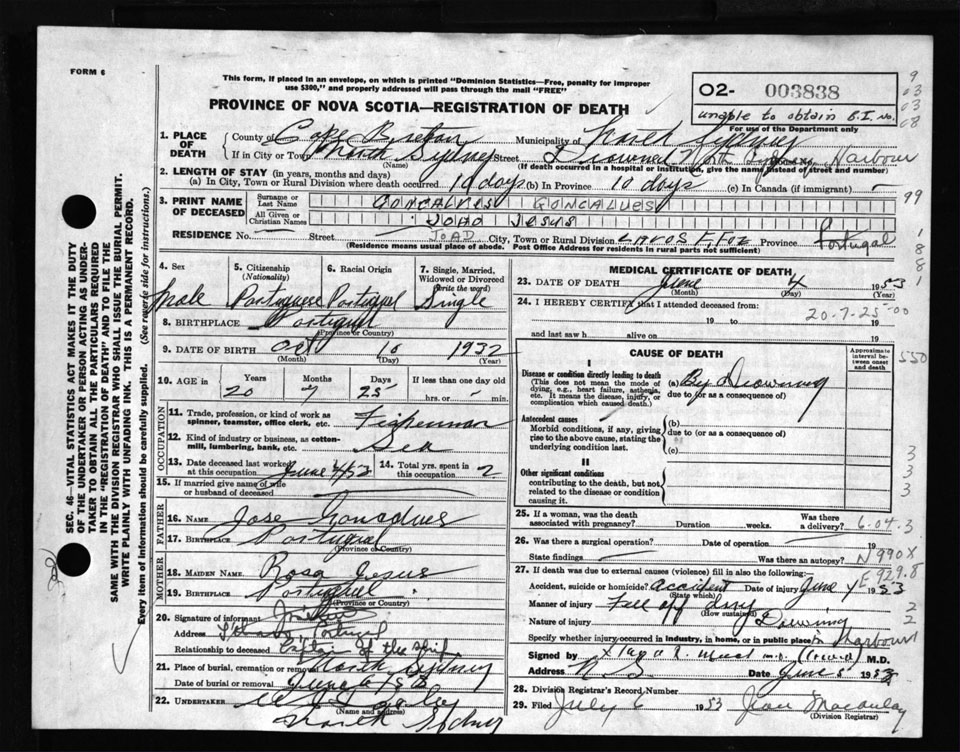 FORM 6
This form, if placed in an envelope, on which is printed "Dominion Statistics—Free, penalty for improper
use $300," and properly addressed will pass through the mail "FREE"
PROVINCE OF NOVA SCOTIA—REGISTRATION OF DEATH
02- 003838
unable to obtain B.I. no.
For use of the Department only
1. PLACE OF DEATH
County of Cape Breton Municipality of North Sydney
If in City or Town North Sydney Street Drowned North Sydney Harbour
(Name) (If death occurred in a hospital or institution, give the name instead of street and number)
2. LENGTH OF STAY (in years, months and days)
(a) In City, Town or Rural Division where death occurred 10 days (b) In Province 10 days (c) In Canada (if immigrant) —
3. PRINT NAME OF DECEASED
Surname or Last Name GONCALVES GONCALUES
All Given or Christian Names JOAO JESUS
JOAO
RESIDENCE No. Street City, Town or Rural Division LAVOS F. Foz Province Portugal
(Residence means usual place of abode. Post Office Address for residents in rural parts not sufficient)
4. Sex Male
5. Citizenship (Nationality) Portuguese
6. Racial Origin Portugal
7. Single, Married, Widowed or Divorced (write the word) Single
8. BIRTHPLACE Portugal
(Province or Country)
9. DATE OF BIRTH Oct 10 1932
(Month) (Day) (Year)
10. AGE in Years Months Days If less than one day old
20 7 25 hrs. or min.
OCCUPATION
11. Trade, profession, or kind of work as
spinner, teamster, office clerk, etc. Fisherman
12. Kind of industry or business, as cotton-
mill, lumbering, bank, etc. Sea
13. Date deceased last worked at this occupation June 4/53
14. Total yrs. spent in this occupation 2
15. If married give name of wife
or husband of deceased
FATHER
16. NAME Jose Goncalves
17. BIRTHPLACE Portugal
(Province or Country)
MOTHER
18. MAIDEN NAME Rosa Jesus
19. BIRTHPLACE Portugal
(Province or Country)
20. Signature of informant
Address Portugal
Relationship to deceased Captain of the ship
21. Place of burial, cremation or removal North Sydney
Date of burial or removal June 6/53
22. UNDERTAKER
(Name and address)
North Sydney
MEDICAL CERTIFICATE OF DEATH
23. DATE OF DEATH June 4 1953
(Month) (Day) (Year)
24. I HEREBY CERTIFY that I attended deceased from:
20-7-25-00
19 to 19
and last saw h alive on 19
CAUSE OF DEATH
Approximate interval between onset and death
Disease or condition directly leading to death
(This does not mean the mode of dying, e.g., heart failure, asthenia, etc. It means the disease, injury, or complication which caused death.)
(a) By Drowning
due to (or as a consequence of)
Antecedent causes
Morbid conditions, if any, giving rise to the above cause, stating the underlying condition last.
(b)
due to (or as a consequence of)
(c)
II
Other significant conditions
contributing to the death, but not related to the disease or condition causing it.
25. If a woman, was the death associated with pregnancy? Duration weeks. Was there a delivery?
6-04.3
26. Was there a surgical operation? Date of operation 19
State findings Was there an autopsy?
N990X
27. If death was due to external causes (violence) fill in also the following:
E929.8
Accident, suicide or homicide? accident Date of injury June 4 1953
(State which)
Manner of injury Fell off dory
(How sustained)
Nature of injury Drowning
Specify whether injury occurred in industry, in home, or in public place in Harbour
Signed by M.D.
Address N.S. Date June 5 1953
28. Division Registrar's Record Number
29. Filed July 6 1953 Jean Macaulay
(Division Registrar)
SEC. 46—VITAL STATISTICS ACT MAKES IT THE DUTY
OF THE UNDERTAKER OR PERSON ACTING AS UNDER-
TAKER TO OBTAIN ALL THE PARTICULARS REQUIRED
IN THE "REGISTRATION OF DEATH" AND TO FILE THE
SAME WITH THE DIVISION REGISTRAR WHO SHALL ISSUE THE BURIAL PERMIT.
WRITE PLAINLY WITH UNFADING INK. THIS IS A PERMANENT RECORD.
Every item of information should be carefully supplied. (See reverse side for instructions.)
9
03
03
08
99
1
8
8
1
550
3
3
3
2
2